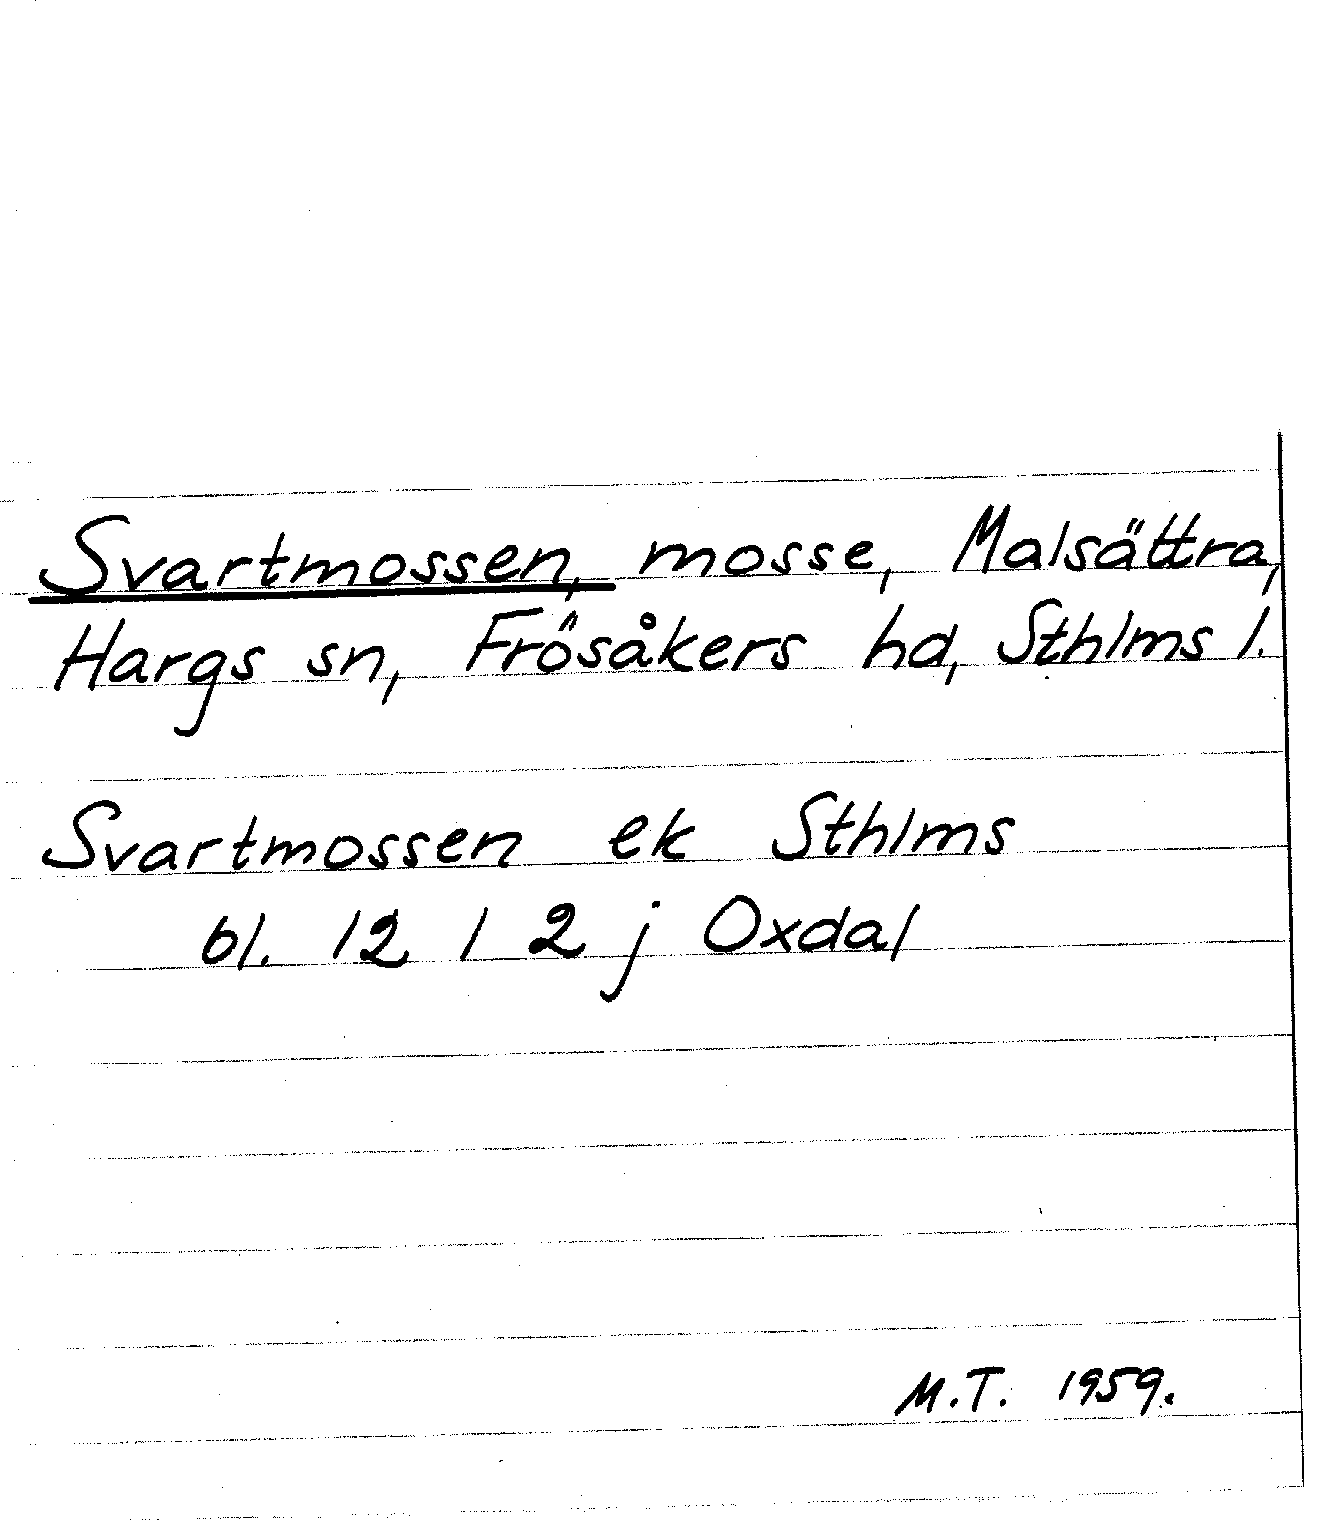 Svartmossen, mosse, Malsättra,
Hargs sn, Frösåkers hd, Sthlms l.
Svartmossen ek Sthlms
bl. 12 I 2 j Oxdal
M.T. 1959.